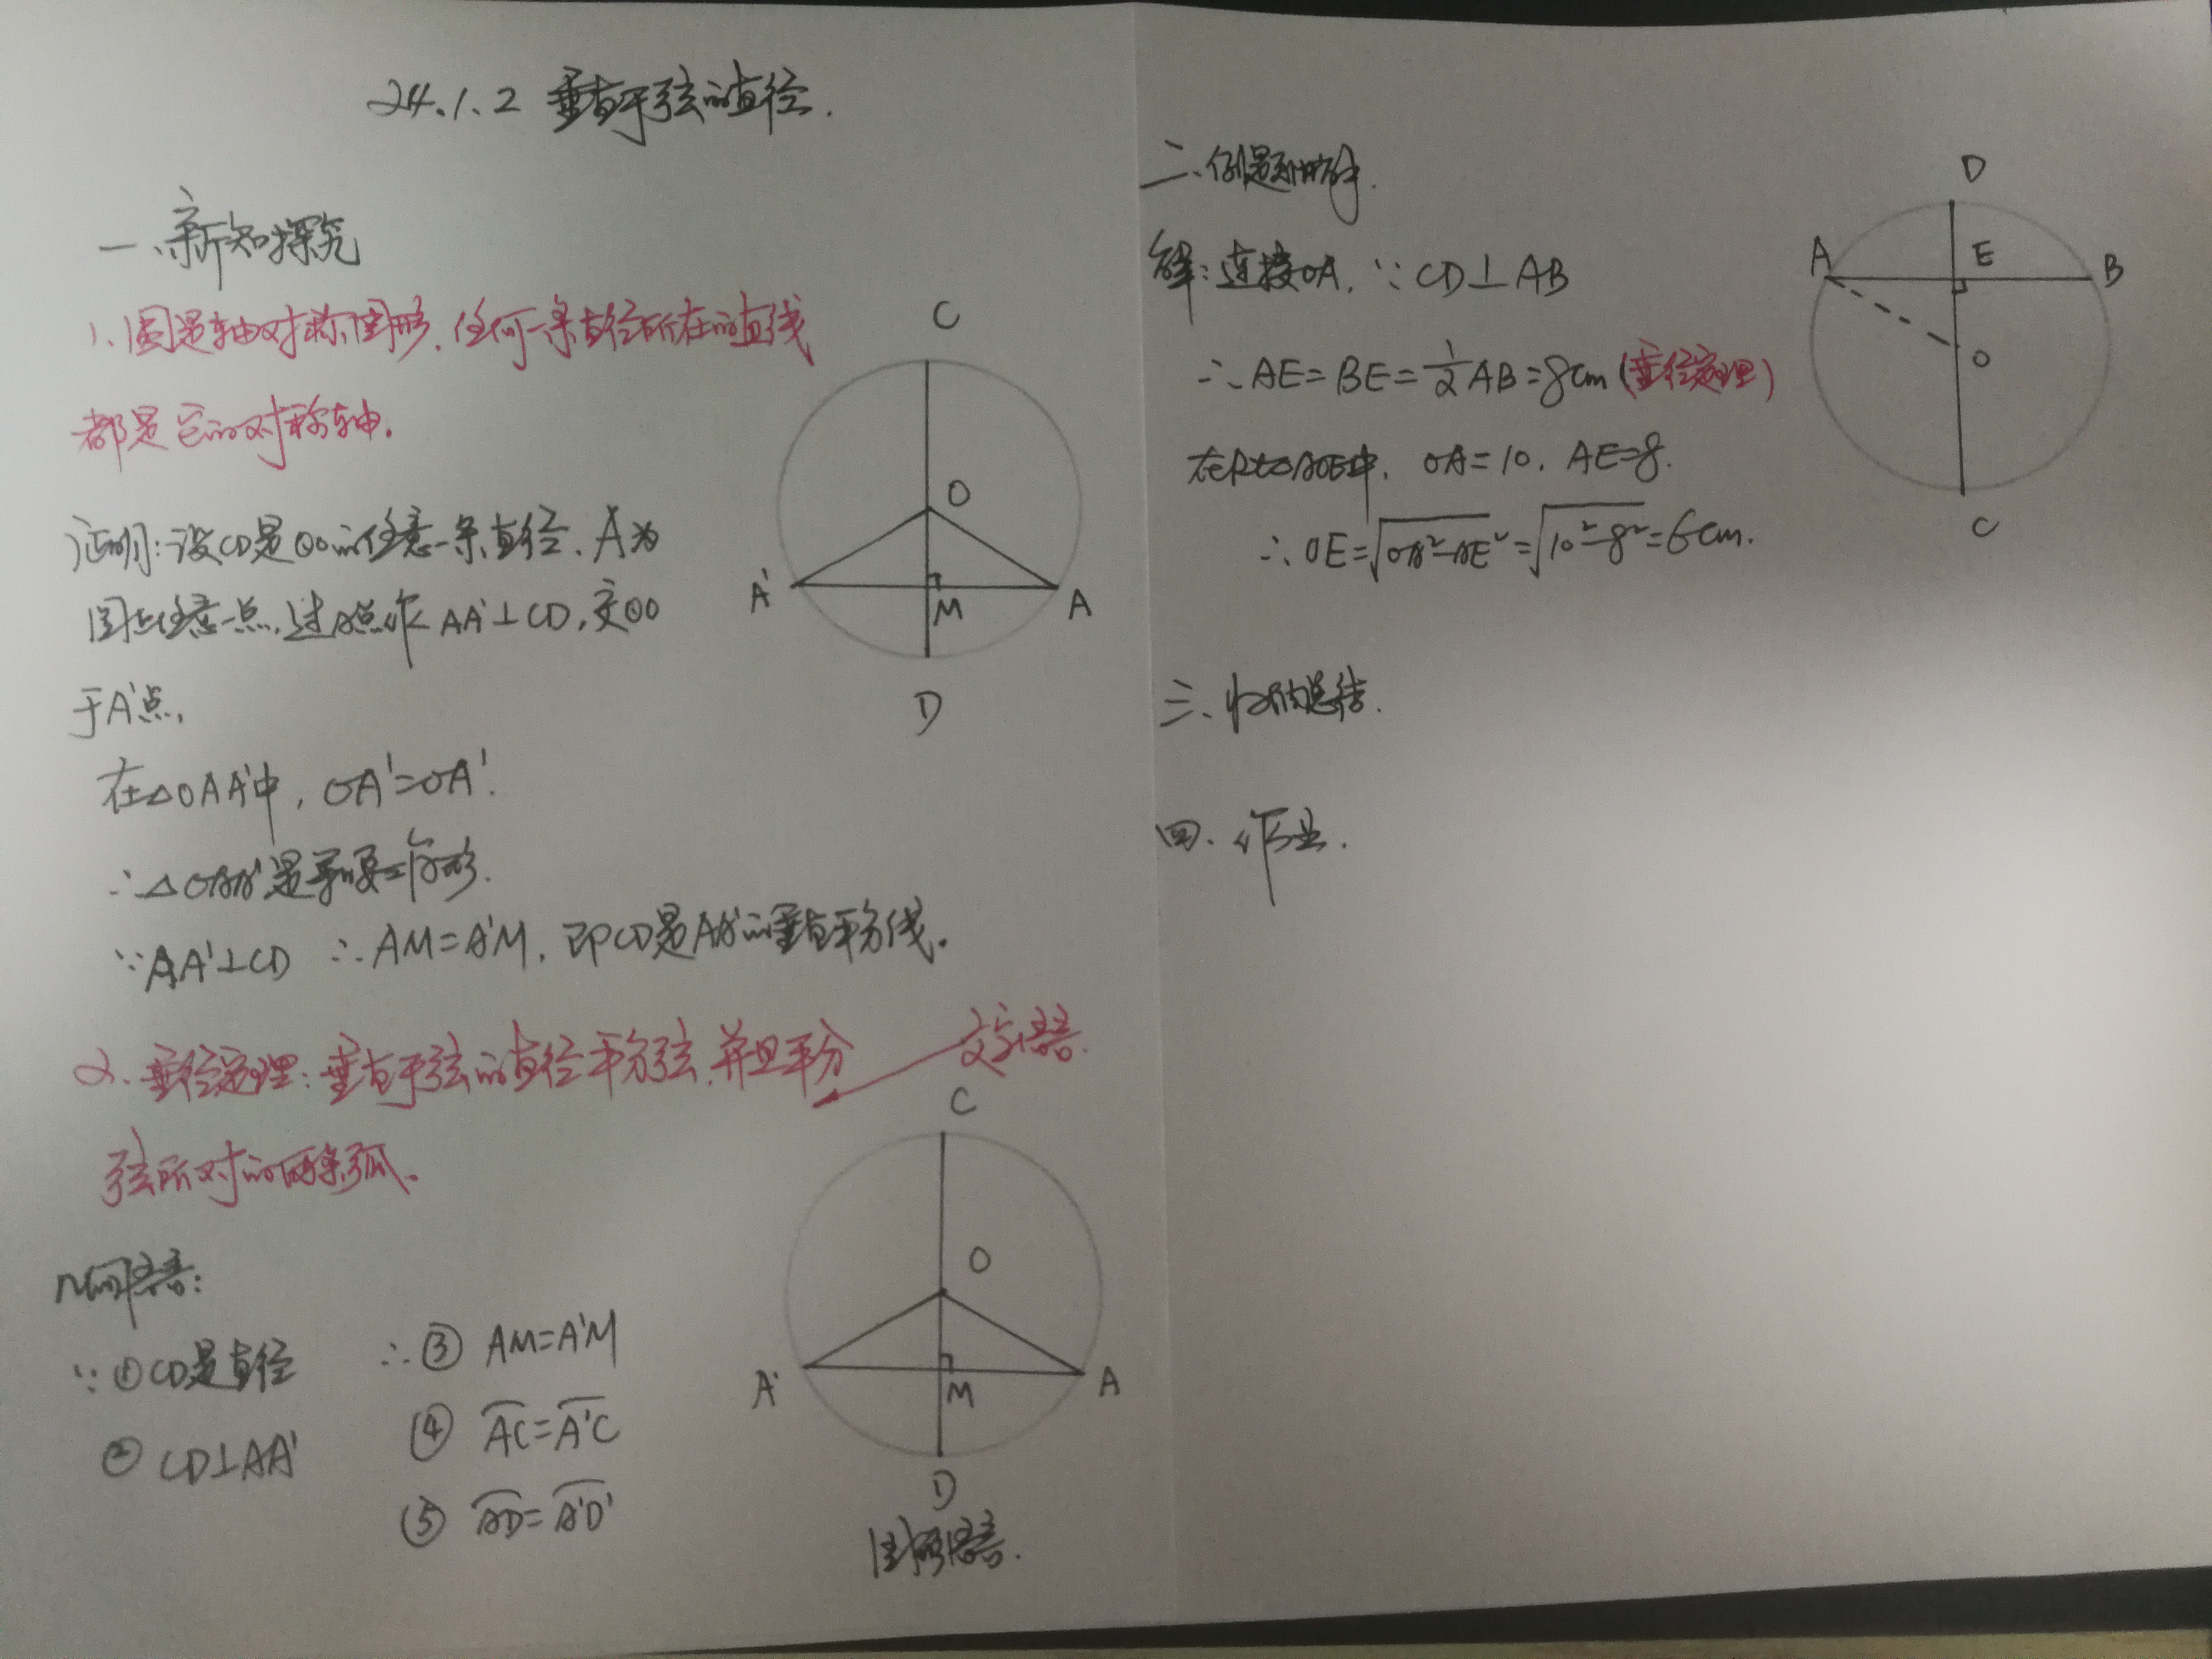 24.1.2 垂直于弦的直径.
一、新知探究
1、圆是轴对称图形，任何一条直径所在的直线
都是它的对称轴.
证明：设CD是⊙O的任意一条直径、A为
圆上任意一点，过A点作AA'⊥CD，交⊙O
于A'点，
在△OAA'中，OA'=OA'.
∴△OAA'是等腰三角形.
∵AA'⊥CD ∴AM=A'M，即CD是AA'的垂直平分线。
C
O
A'
M
A
D
2、垂径定理：垂直于弦的直径平分弦，并且平分
弦所对的两条弧。
文字语言.
几何语言：
∵①CD是直径 ∴③ AM=A'M
② CD⊥AA' ④ ⌒AC=⌒A'C
⑤ ⌒AD=⌒A'D'
C
O
A'
M
A
D
图形语言.
二、例题讲解.
解：连接OA，∵CD⊥AB
∴AE=BE=1/2AB=8cm（垂径定理）
在Rt△AOE中，OA=10，AE=8.
∴OE=√OA²-AE²=√10²-8²=6cm.
D
A
E
B
O
C
三、归纳总结.
四、作业.